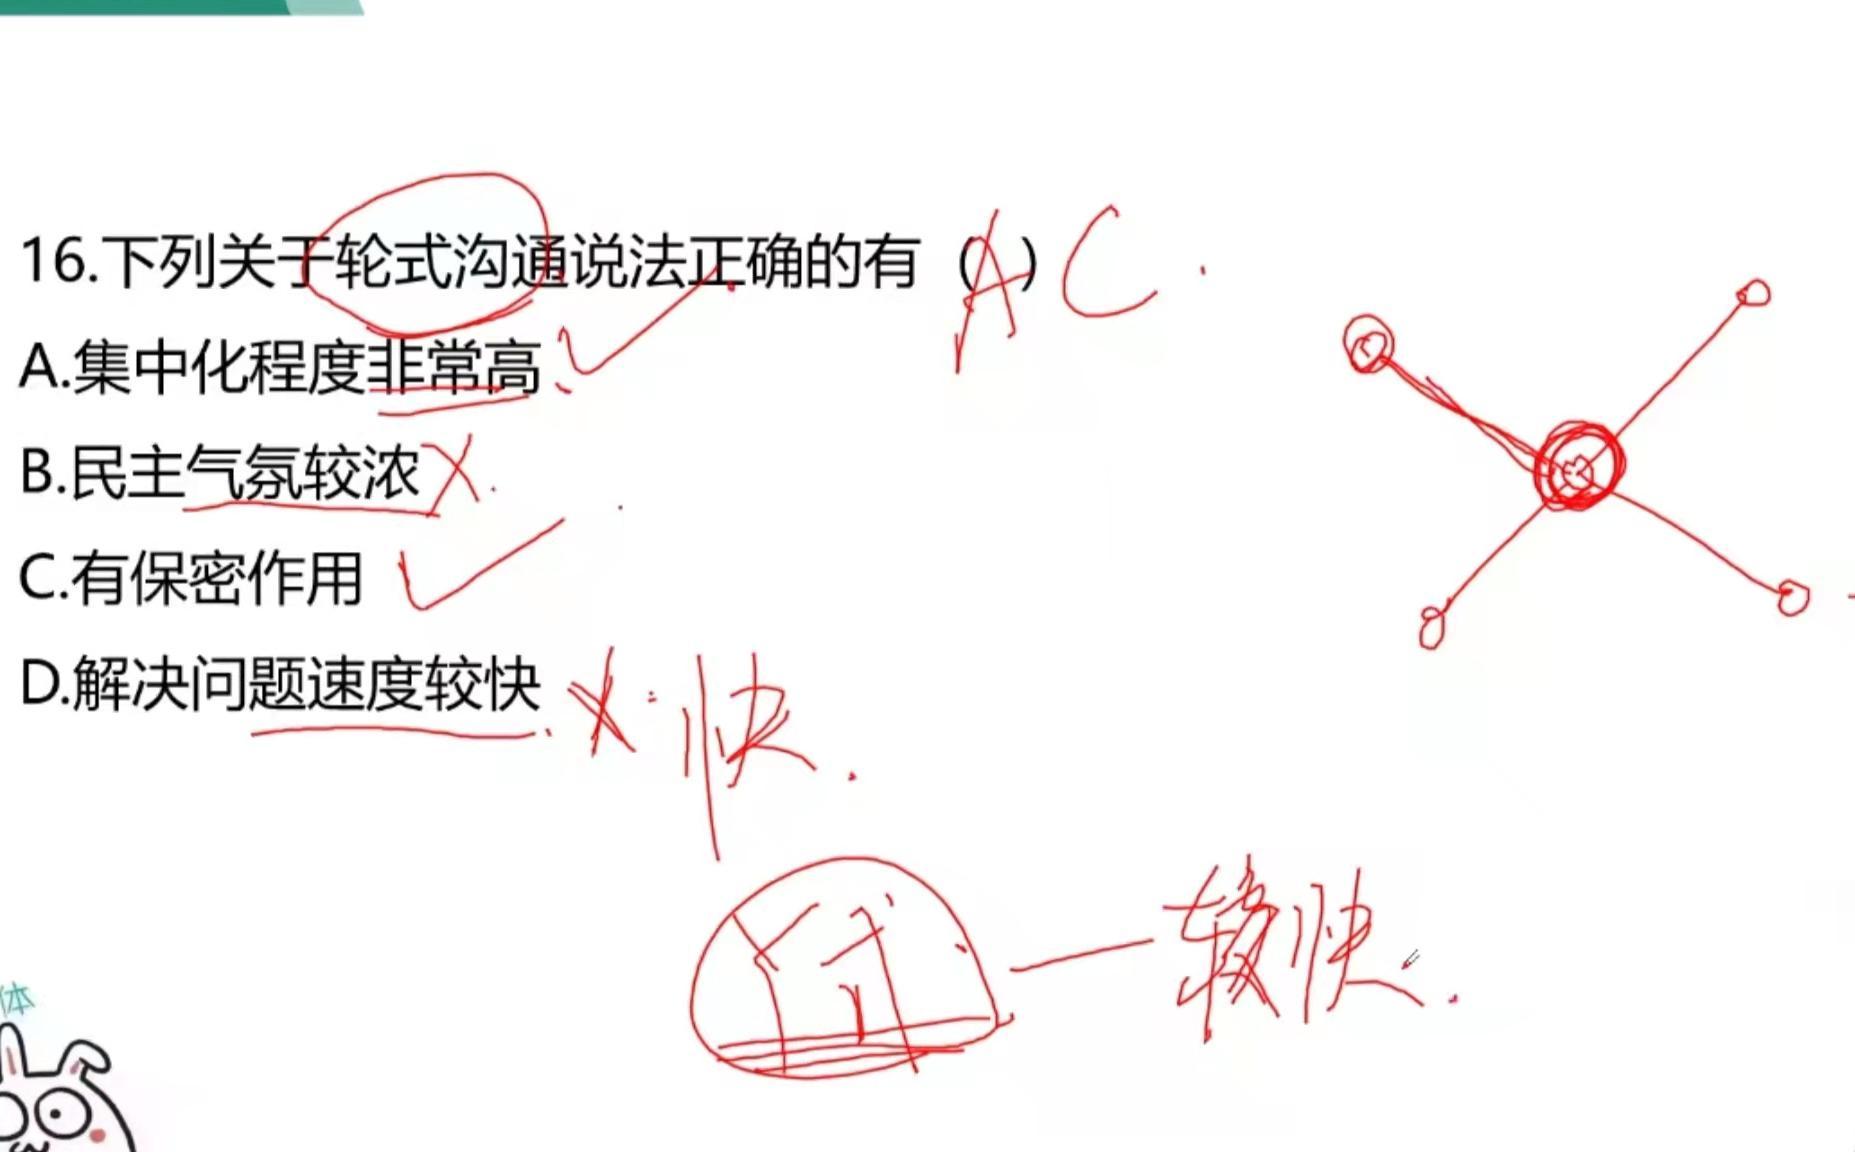 16.下列关于轮式沟通说法正确的有（ ）AC
A.集中化程度非常高
B.民主气氛较浓
C.有保密作用
D.解决问题速度较快 快
较快
体